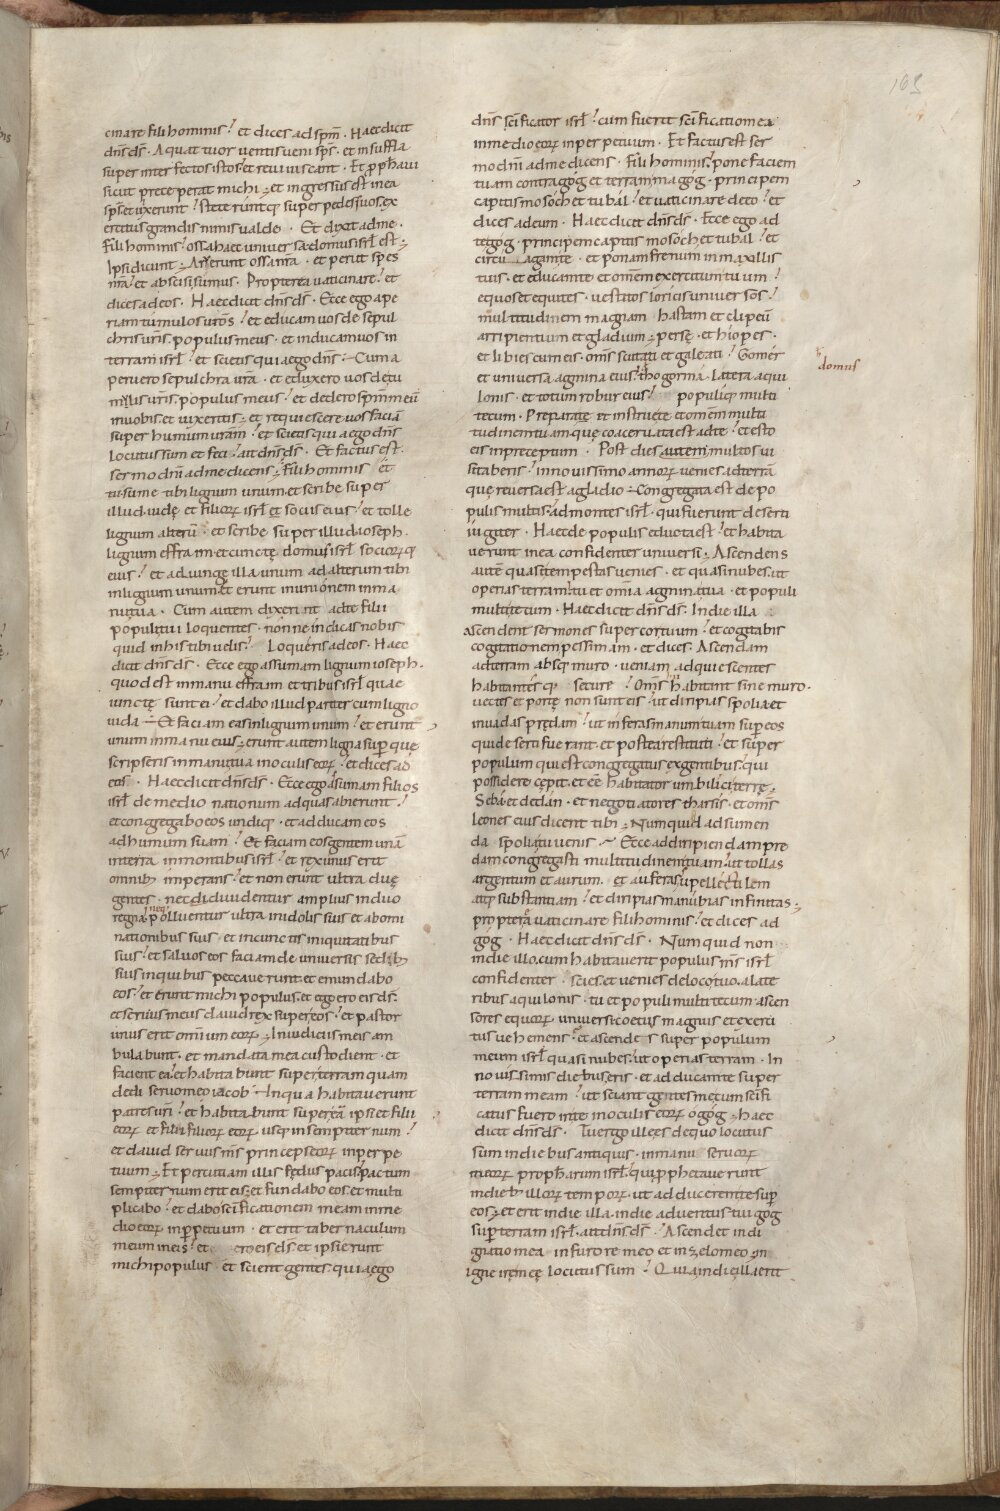 103
cinare fili hominis? et dices ad spm̄. Haec dicit
dn̄s ds̄. A quattuor ventis veni sps̄. et insuffla
super interfectos istos et reviviscant. Et ꝓphavi
sicut preceperat michi; et ingressus est in ea
sps̄ et vixerunt? steteruntq; super pedes suos ex
ercitus grandis nimis valde. Et dixit ad me.
Fili hominis? ossa haec universa domus isrl̄ est;
Ipsi dicunt; Aruerunt ossa nr̄a. et periit spes
nr̄a? et abscisi sumus. Propterea vaticinare? et
dices ad eos. Haec dicit dn̄s ds̄. Ecce ego ape
riam tumulos vr̄os? et educam vos de sepul
chris vr̄is populus meus. et inducam vos in
terram isrl̄? et scietis quia ego dn̄s. Cum a
peruero sepulchra vr̄a. et eduxero vos de tu
mulis vr̄is populus meus? et dedero spm̄ meū
in vobis et vixeritis; et requiescere vos faciā
super humum vr̄am? et scietis quia ego dn̄s
locutus sum et feci? ait dn̄s ds̄. Et factus est
sermo dn̄i ad me dicens; Fili hominis et
tu sume tibi lignum unum et scribe super
illud. iudę et filiorꝝ isrl̄ et sociis eius? et tolle
lignum alterū. et scribe super illud. ioseph.
lignum effraim et cunctę domui isrl̄ sociorꝝq;
eius? et adiunge illa unum ad alterum tibi
in lignum unum. et erunt in unionem in ma
nu tua. Cum autem dixerint ad te filii
populi tui loquentes. nonne indicas nobis
quid in his tibi velis? Loqueris ad eos. Haec
dicit dn̄s ds̄. Ecce ego assumam lignum ioseph.
quod est in manu effraim et tribus isrl̄ quae
iunctę sunt ei? et dabo illud pariter cum ligno
iuda. Et faciam eas in lignum unum? et erunt
unum in manu eius; erunt autem ligna sup̱ quę
scripseris in manu tua in oculis eorꝝ. et dices ad
eos. Haec dicit dn̄s ds̄. Ecce ego assumam filios
isrl̄ de medio nationum ad quas abierunt?
et congregabo eos undiq;. et adducam eos
ad humum suam? Et faciam eos gentem unā
in terra in montibus isrl̄? et rex unus erit
omnib; imperans? et non erunt ultra duę
gentes. nec dividentur amplius in duo
regna. neq; polluentur ultra in idolis suis et abomi
nationibus suis et in cunctis iniquitatibus
suis? et salvos eos faciam de universis sedib;
suis in quibus peccaverunt et emundabo
eos? et erunt michi populus. et ego ero eis ds̄.
et servus meus david rex super eos? et pastor
unus erit omnium eorꝝ; In iudiciis meis am
bulabunt. et mandata mea custodient. et
facient ea? et habitabunt super terram quam
dedi servo meo iacob. In qua habitaverunt
patres vr̄i? et habitabunt super eā ipsi et filii
eorꝝ et filii filiorꝝ eorꝝ usq; in sempiternum?
et david servus m̄s princeps eorꝝ in perpe
tuum; Et percutiam illis fędus pacis. pactum
sempiternum erit eis; et fundabo eos et multi
plicabo? et dabo sc̄ificationem meam in me
dio eorꝝ in ꝑpetuum. et erit tabernaculum
meum in eis? et ero eis ds̄ et ipsi erunt
michi populus et scient gentes quia ego
dn̄s sc̄ificator isrl̄? cum fuerit sc̄ificatio mea
in medio eorꝝ in perpetuum. Et factus est ser
mo dn̄i ad me dicens. Fili hominis? pone faciem
tuam contra gog et terram magog. principem
capitis mosoch et tubal? et vaticinare de eo? et
dices ad eum. Haec dicit dn̄s ds̄. Ecce ego ad
te gog. principem capitis mosoch et tubal? et
circūagam te. et ponam frenum in maxillis
tuis. et educam te et omnem exercitum tuum?
equos et equites. vestitos loricis universos?
multitudinem magnam hastam et clipeū
arripientium et gladium; persę. et hiopes.
et libies cum eis. om̄s scutati et galeati? Gomer
et universa agmina eius? thogorma. latera aqui
domus
lonis. et totum robur eius? populiq; multi
tecum. Prepara te et instrue te et omnem multi
tudinem tuam quę coacervata est ad te? et esto
eis in preceptum. Post dies autem multos vi
sitaberis? in novissimo annorꝝ venies ad terrā
quę reversa est a gladio. Congregata est de po
pulis multis. ad montes isrl̄. qui fuerunt deserti
iugiter. Haec de populis educta est? et habita
verunt in ea confidenter universi; Ascendens
autē quasi tempestas venies. et quasi nubes. ut
operias terram? tu et om̄ia agmina tua. et populi
multi tecum. Haec dicit dn̄s ds̄. In die illa
ascendent sermones super cor tuum? et cogitabis
cogitationem pessimam. et dices. Ascendam
ad terram absq; muro. veniam ad quiescentes
habitantesq; secure? Om̄s hi habitant sine muro.
vectes et portę non sunt eis? ut diripias spolia et
invadas prędam? ut inferas manum tuam sup̱ eos
qui deserti fuerant. et postea restituti? et super
populum qui est congregatus ex gentibus. qui
possidere cępit. et eē habitator umbilici terrę;
Seba et dedan. et negotiatores tharsis. et om̄s
leones eius dicent tibi; Numquid ad sumen
da spolia tu venis. Ecce ad diripiendam pre
dam congregasti multitudinem tuam? ut tollas
argentum et aurum. et auferas supellectilem
atq; substantiam? et diripias manubias infinitas;
propterea vaticinare fili hominis? et dices ad
gog. Haec dicit dn̄s ds̄. Numquid non
in die illo. cum habitaverit populus m̄s isrl̄
confidenter scies. et venies de loco tuo. a late
ribus aquilonis. tu et populi multi tecum. ascen
sores equorꝝ universi. coetus magnus et exerci
tus vehemens? et ascendes super populum
meum isrl̄ quasi nubes. ut operias terram. In
novissimis diebus eris. et adducam te super
terram meam? ut sciant gentes me. cum sc̄ifi
catus fuero in te in oculis eorꝝ o gog; haec
dicit dn̄s ds̄. Tu ergo ille es de quo locutus
sum in diebus antiquis. in manu servorꝝ
meorꝝ prophetarum isrl̄. qui ꝓphetaverunt
in dieb; illorꝝ temporꝝ. ut adducerem te sup̱
eos; et erit in die illa. in die adventus tui gog
sup̱ terram isrl̄. ait dn̄s ds̄. Ascendet indi
gnatio mea in furore meo et in zelo meo in
igne irę meę locutus sum? Quia in die illa erit